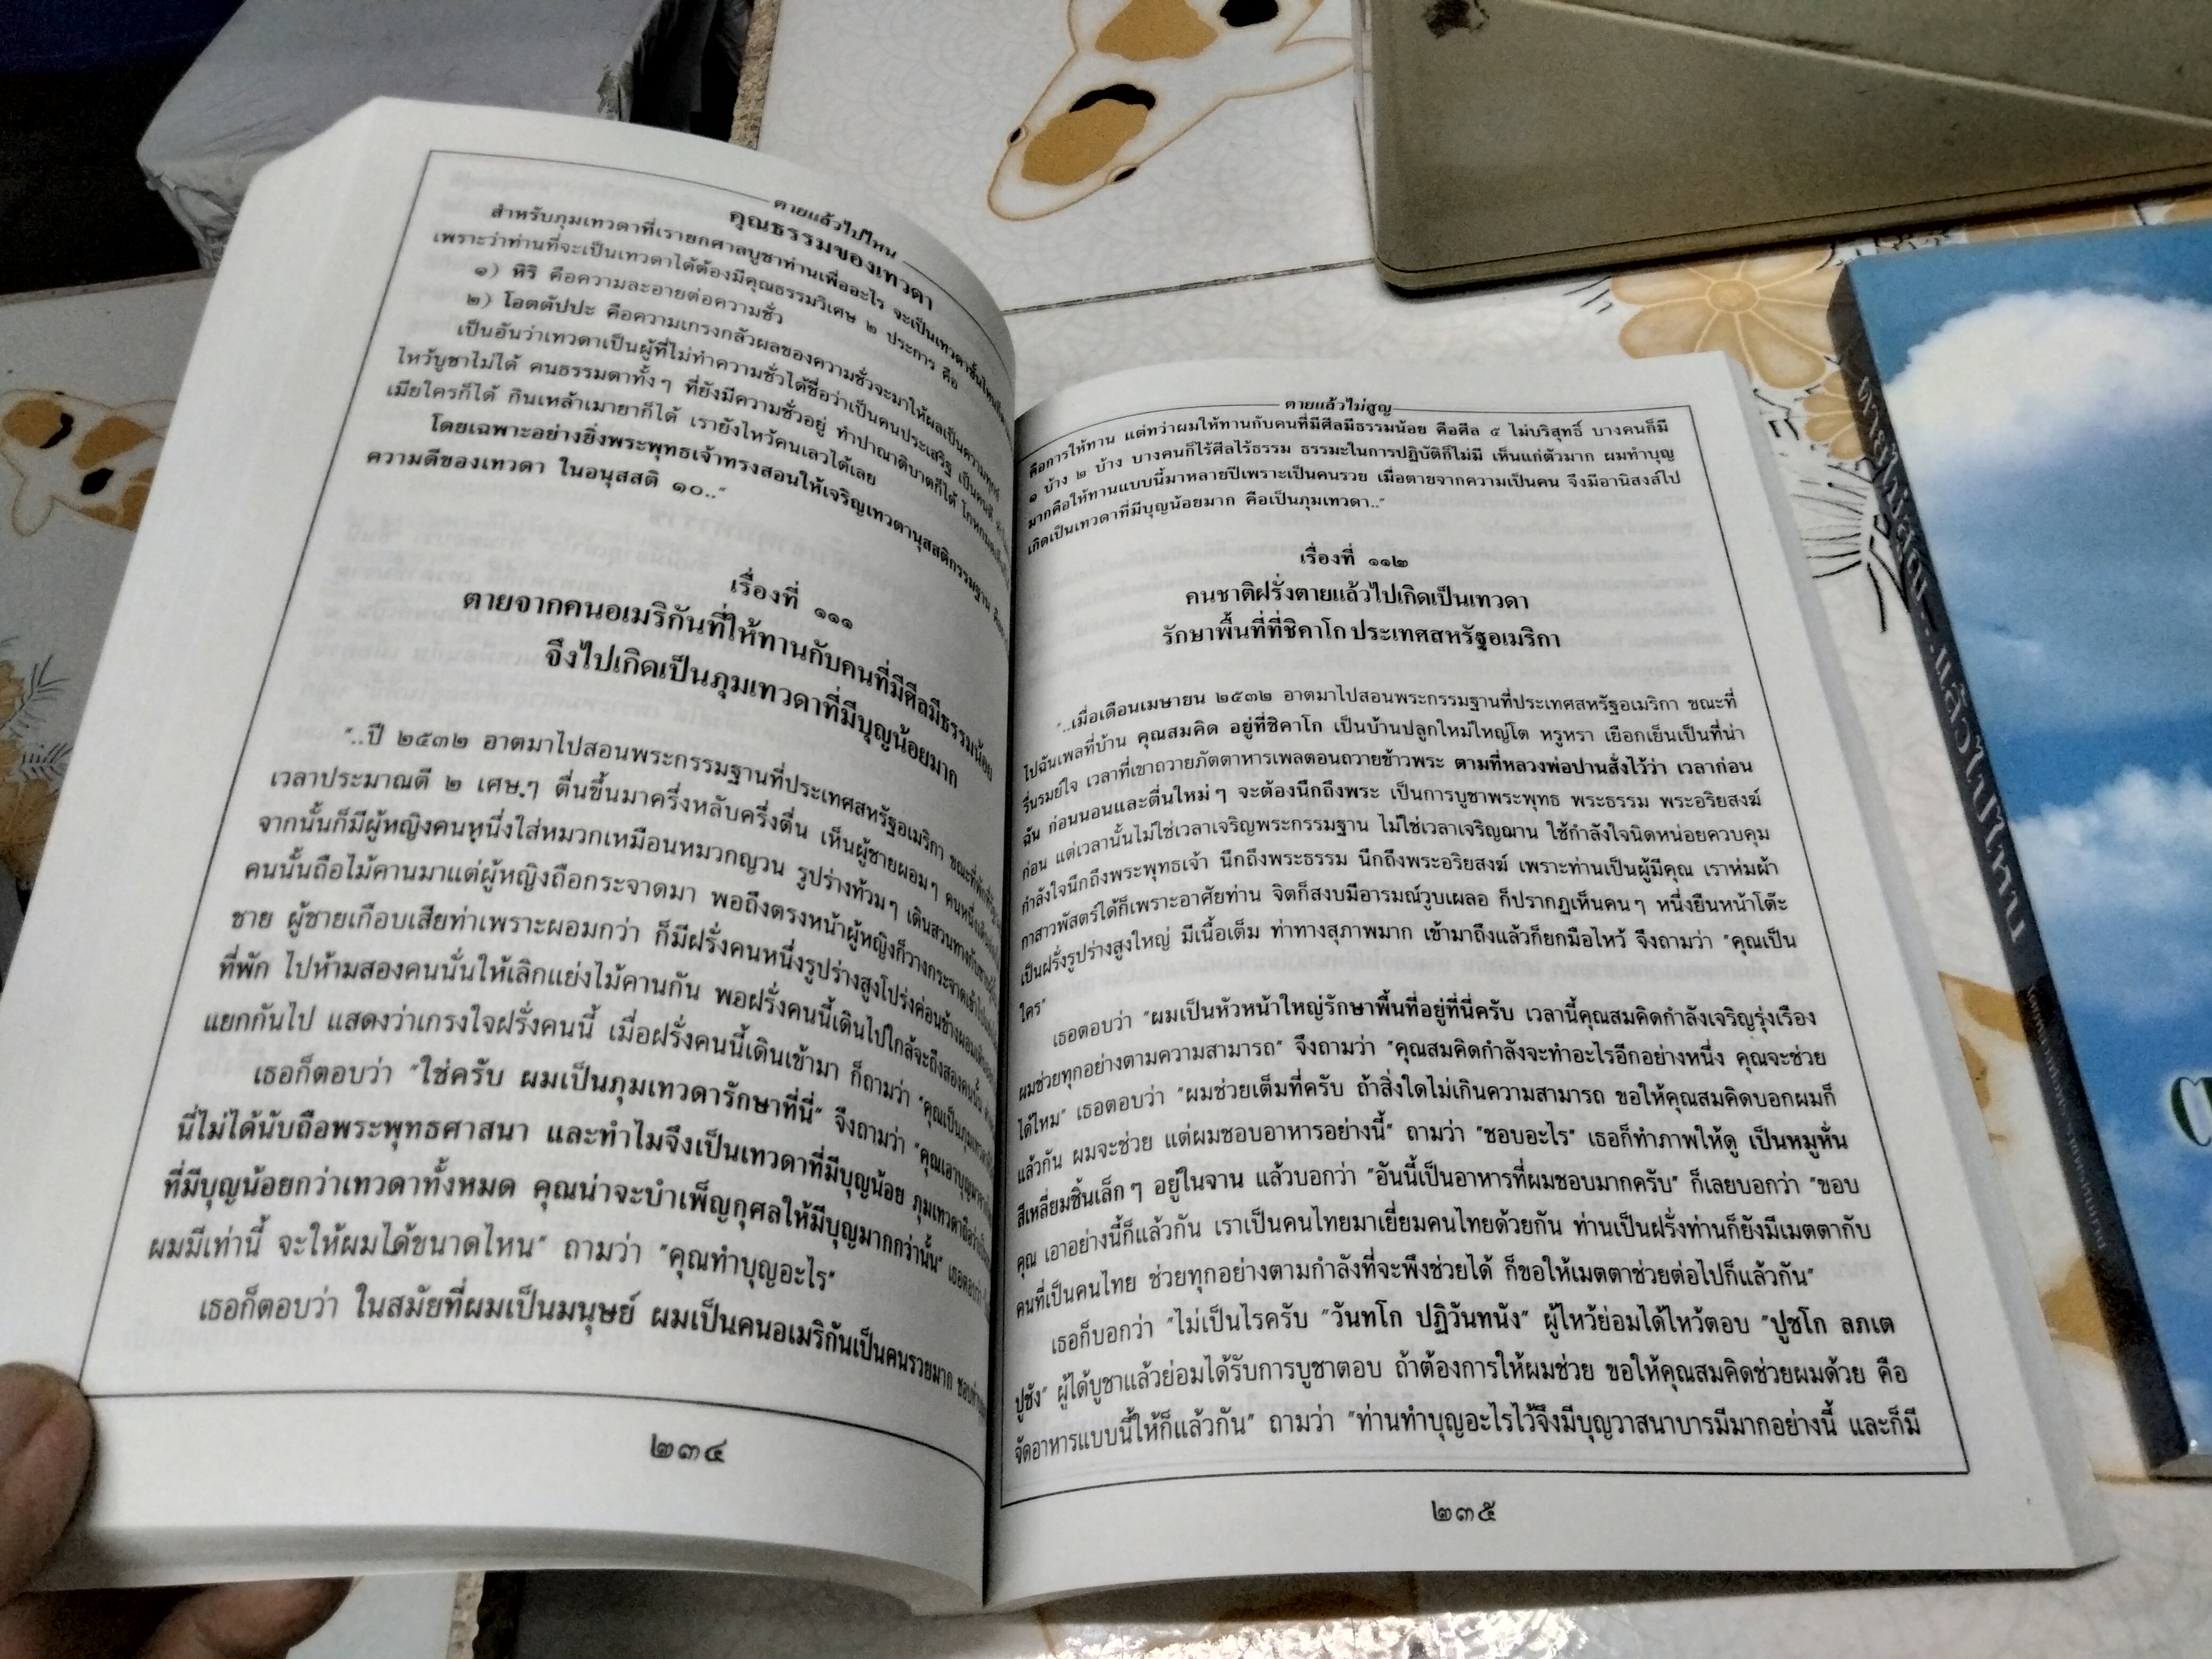 ตายแล้วไปไหน
คุณธรรมของเทวดา
สำหรับภุมเทวดาที่เรายกศาลบูชาท่านเพื่ออะไร จะเป็นเทวดาชั้นไหนก็ตาม
เพราะว่าท่านที่จะเป็นเทวดาได้ต้องมีคุณธรรมวิเศษ ๒ ประการ คือ
๑) หิริ คือความละอายต่อความชั่ว
๒) โอตตัปปะ คือความเกรงกลัวผลของความชั่วจะมาให้ผลเป็นความทุกข์
เป็นอันว่าเทวดาเป็นผู้ที่ไม่ทำความชั่วได้ชื่อว่าเป็นคนประเสริฐ เป็นคนดี
ไหว้บูชาไม่ได้ คนธรรมดาทั้งๆ ที่ยังมีความชั่วอยู่ ทำปาณาติบาตก็ได้
เมียใครก็ได้ กินเหล้าเมายาก็ได้ เรายังไหว้คนเลวได้เลย
โดยเฉพาะอย่างยิ่งพระพุทธเจ้าทรงสอนให้เจริญเทวตานุสสติกรรมฐาน
ความดีของเทวดา ในอนุสสติ ๑๐.."
เรื่องที่ ๑๑๑
ตายจากคนอเมริกันที่ให้ทานกับคนที่มีศีลมีธรรมน้อย
จึงไปเกิดเป็นภุมเทวดาที่มีบุญน้อยมาก
"..ปี ๒๕๓๒ อาตมาไปสอนพระกรรมฐานที่ประเทศสหรัฐอเมริกา ขณะที่พัก
เวลาประมาณตี ๒ เศษๆ ตื่นขึ้นมาครึ่งหลับครึ่งตื่น เห็นผู้ชายผอมๆ คนหนึ่ง
จากนั้นก็มีผู้หญิงคนหนึ่งใส่หมวกเหมือนหมวกญวน รูปร่างท้วมๆ เดินสวนทางกับชาย
คนนั้นถือไม้คานมาแต่ผู้หญิงถือกระจาดมา พอถึงตรงหน้าผู้หญิงก็วางกระจาด
ชาย ผู้ชายเกือบเสียท่าเพราะผอมกว่า ก็มีฝรั่งคนหนึ่งรูปร่างสูงโปร่งค่อนข้างผอม
ที่พัก ไปห้ามสองคนนั่นให้เลิกแย่งไม้คานกัน พอฝรั่งคนนี้เดินไปใกล้จะถึงสองคนนั้น
แยกกันไป แสดงว่าเกรงใจฝรั่งคนนี้ เมื่อฝรั่งคนนี้เดินเข้ามา ก็ถามว่า "คุณเป็นภุมเทวดา
เธอก็ตอบว่า "ใช่ครับ ผมเป็นภุมเทวดารักษาที่นี่" จึงถามว่า "คุณเอาบุญ
นี่ไม่ได้นับถือพระพุทธศาสนา และทำไมจึงเป็นเทวดาที่มีบุญน้อย ภุมเทวดา
ที่มีบุญน้อยกว่าเทวดาทั้งหมด คุณน่าจะบำเพ็ญกุศลให้มีบุญมากกว่านั้น" เธอตอบว่า
ผมมีเท่านี้ จะให้ผมได้ขนาดไหน" ถามว่า "คุณทำบุญอะไร"
เธอก็ตอบว่า ในสมัยที่ผมเป็นมนุษย์ ผมเป็นคนอเมริกันเป็นคนรวยมาก
๒๓๔
ตายแล้วไม่สูญ
คือการให้ทาน แต่ทว่าผมให้ทานกับคนที่มีศีลมีธรรมน้อย คือศีล ๕ ไม่บริสุทธิ์ บางคนก็มี
๑ บ้าง ๒ บ้าง บางคนก็ไร้ศีลไร้ธรรม ธรรมะในการปฏิบัติก็ไม่มี เห็นแก่ตัวมาก ผมทำบุญ
มากคือให้ทานแบบนี้มาหลายปีเพราะเป็นคนรวย เมื่อตายจากความเป็นคน จึงมีอานิสงส์ไป
เกิดเป็นเทวดาที่มีบุญน้อยมาก คือเป็นภุมเทวดา.."
เรื่องที่ ๑๑๒
คนชาติฝรั่งตายแล้วไปเกิดเป็นเทวดา
รักษาพื้นที่ที่ชิคาโก ประเทศสหรัฐอเมริกา
"..เมื่อเดือนเมษายน ๒๕๓๒ อาตมาไปสอนพระกรรมฐานที่ประเทศสหรัฐอเมริกา ขณะที่
ไปฉันเพลที่บ้าน คุณสมคิด อยู่ที่ชิคาโก เป็นบ้านปลูกใหม่ใหญ่โต หรูหรา เยือกเย็นเป็นที่น่า
รื่นรมย์ใจ เวลาที่เขาถวายภัตตาหารเพลตอนถวายข้าวพระ ตามที่หลวงพ่อปานสั่งไว้ว่า เวลาก่อน
ฉัน ก่อนนอนและตื่นใหม่ๆ จะต้องนึกถึงพระ เป็นการบูชาพระพุทธ พระธรรม พระอริยสงฆ์
ก่อน แต่เวลานั้นไม่ใช่เวลาเจริญพระกรรมฐาน ไม่ใช่เวลาเจริญฌาน ใช้กำลังใจนิดหน่อยควบคุม
กำลังใจนึกถึงพระพุทธเจ้า นึกถึงพระธรรม นึกถึงพระอริยสงฆ์ เพราะท่านเป็นผู้มีคุณ เราห่มผ้า
กาสาวพัสตร์ได้ก็เพราะอาศัยท่าน จิตก็สงบมีอารมณ์วูบเผลอ ก็ปรากฏเห็นคนๆ หนึ่งยืนหน้าโต๊ะ
เป็นฝรั่งรูปร่างสูงใหญ่ มีเนื้อเต็ม ท่าทางสุภาพมาก เข้ามาถึงแล้วก็ยกมือไหว้ จึงถามว่า "คุณเป็น
ใคร"
เธอตอบว่า "ผมเป็นหัวหน้าใหญ่รักษาพื้นที่อยู่ที่นี่ครับ เวลานี้คุณสมคิดกำลังเจริญรุ่งเรือง
ผมช่วยทุกอย่างตามความสามารถ" จึงถามว่า "คุณสมคิดกำลังจะทำอะไรอีกอย่างหนึ่ง คุณจะช่วย
ได้ไหม" เธอตอบว่า "ผมช่วยเต็มที่ครับ ถ้าสิ่งใดไม่เกินความสามารถ ขอให้คุณสมคิดบอกผมก็
แล้วกัน ผมจะช่วย แต่ผมชอบอาหารอย่างนี้" ถามว่า "ชอบอะไร" เธอก็ทำภาพให้ดู เป็นหมูหั่น
สี่เหลี่ยมชิ้นเล็กๆ อยู่ในจาน แล้วบอกว่า "อันนี้เป็นอาหารที่ผมชอบมากครับ" ก็เลยบอกว่า "ขอบ
คุณ เอาอย่างนี้ก็แล้วกัน เราเป็นคนไทยมาเยี่ยมคนไทยด้วยกัน ท่านเป็นฝรั่งท่านก็ยังมีเมตตากับ
คนที่เป็นคนไทย ช่วยทุกอย่างตามกำลังที่จะพึงช่วยได้ ก็ขอให้เมตตาช่วยต่อไปก็แล้วกัน"
เธอก็บอกว่า "ไม่เป็นไรครับ "วันทโก ปฏิวันทนัง" ผู้ไหว้ย่อมได้ไหว้ตอบ "ปูชโก ลภเต
ปูชัง" ผู้ได้บูชาแล้วย่อมได้รับการบูชาตอบ ถ้าต้องการให้ผมช่วย ขอให้คุณสมคิดช่วยผมด้วย คือ
จัดอาหารแบบนี้ให้ก็แล้วกัน" ถามว่า "ท่านทำบุญอะไรไว้จึงมีบุญวาสนาบารมีมากอย่างนี้ และก็มี
๒๓๕
ตายไม่สูญ...แล้วไปไหน